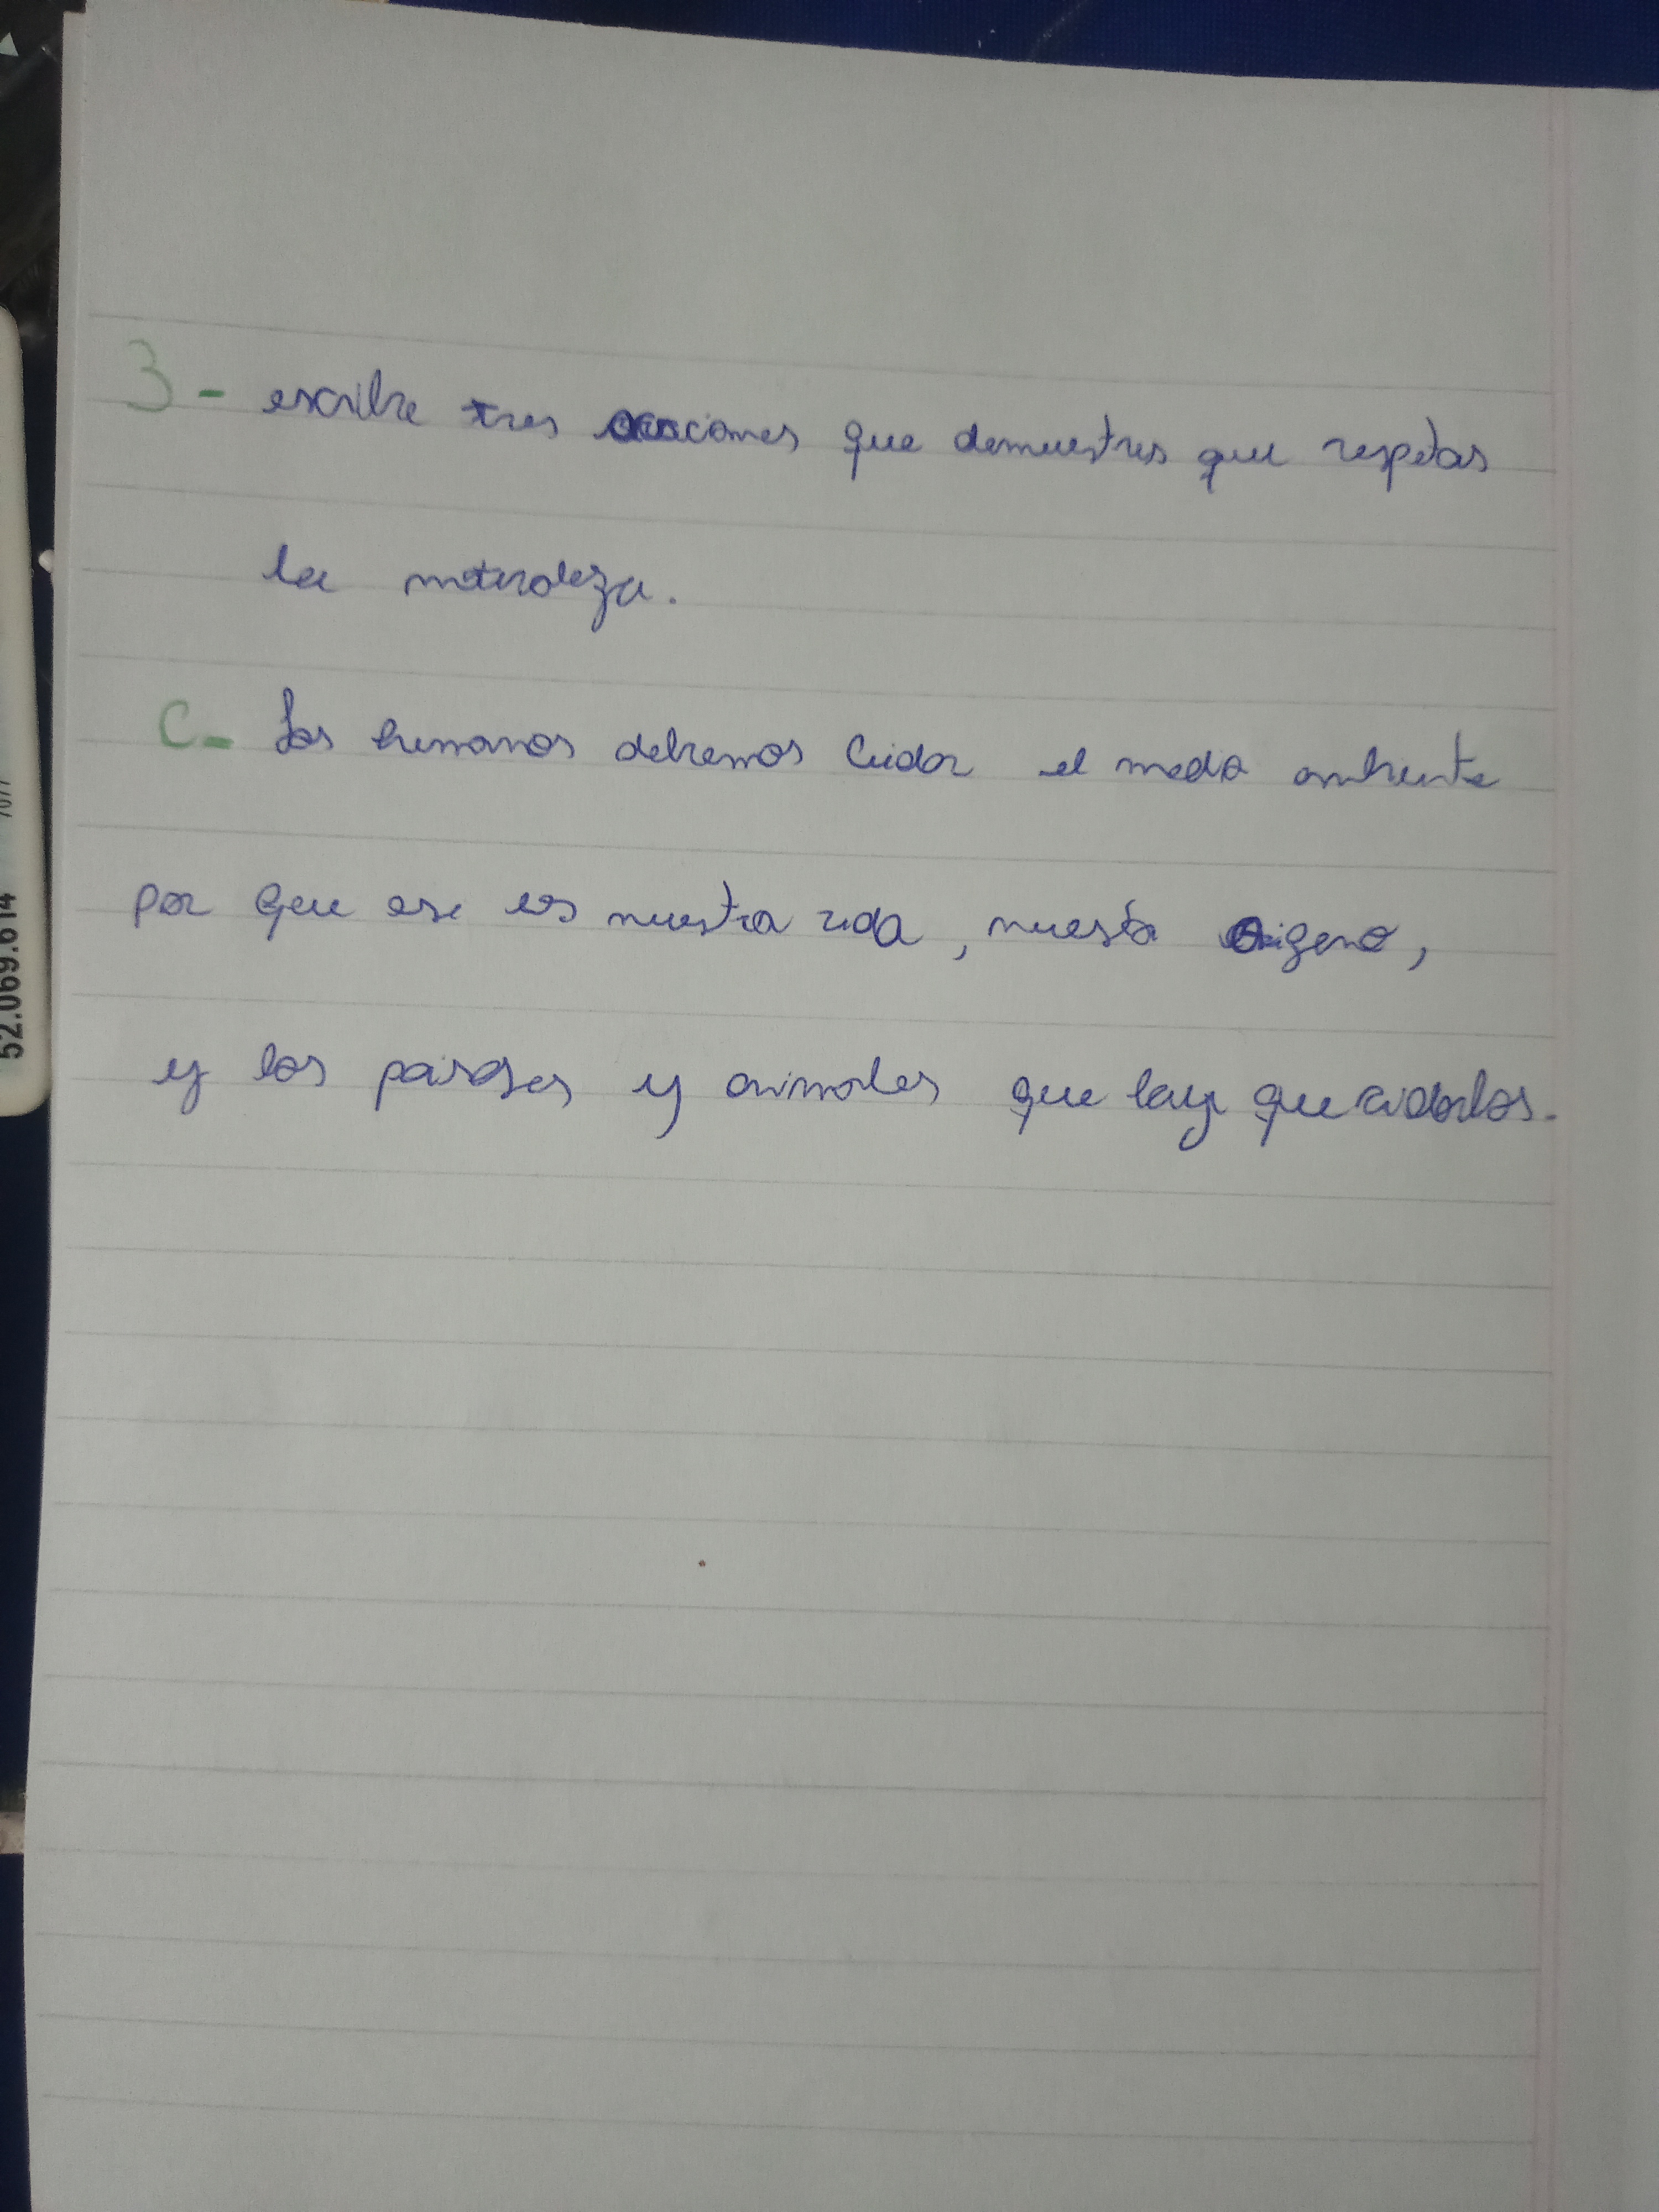 3- escribe tres acciones que demuestres que respetas
la naturaleza.
C- Los humanos debemos cuidar el medio ambiente
por que ese es nuestra vida, nuesta oxigeno,
y los paises y animales que hay que cuidarlos.
52.069.614